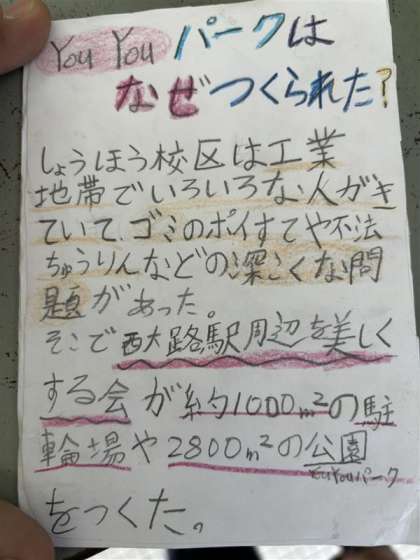 You You パークは
なぜつくられた?
しょうほう校区は工業
地帯でいろいろな人がき
ていて、ゴミのポイすてや不法
ちゅうりんなどの深こくな問
題があった。
そこで西大路駅周辺を美しく
する会が約1000m²の駐
輪場や2800m²の公園
YouYouパーク
をつくた。